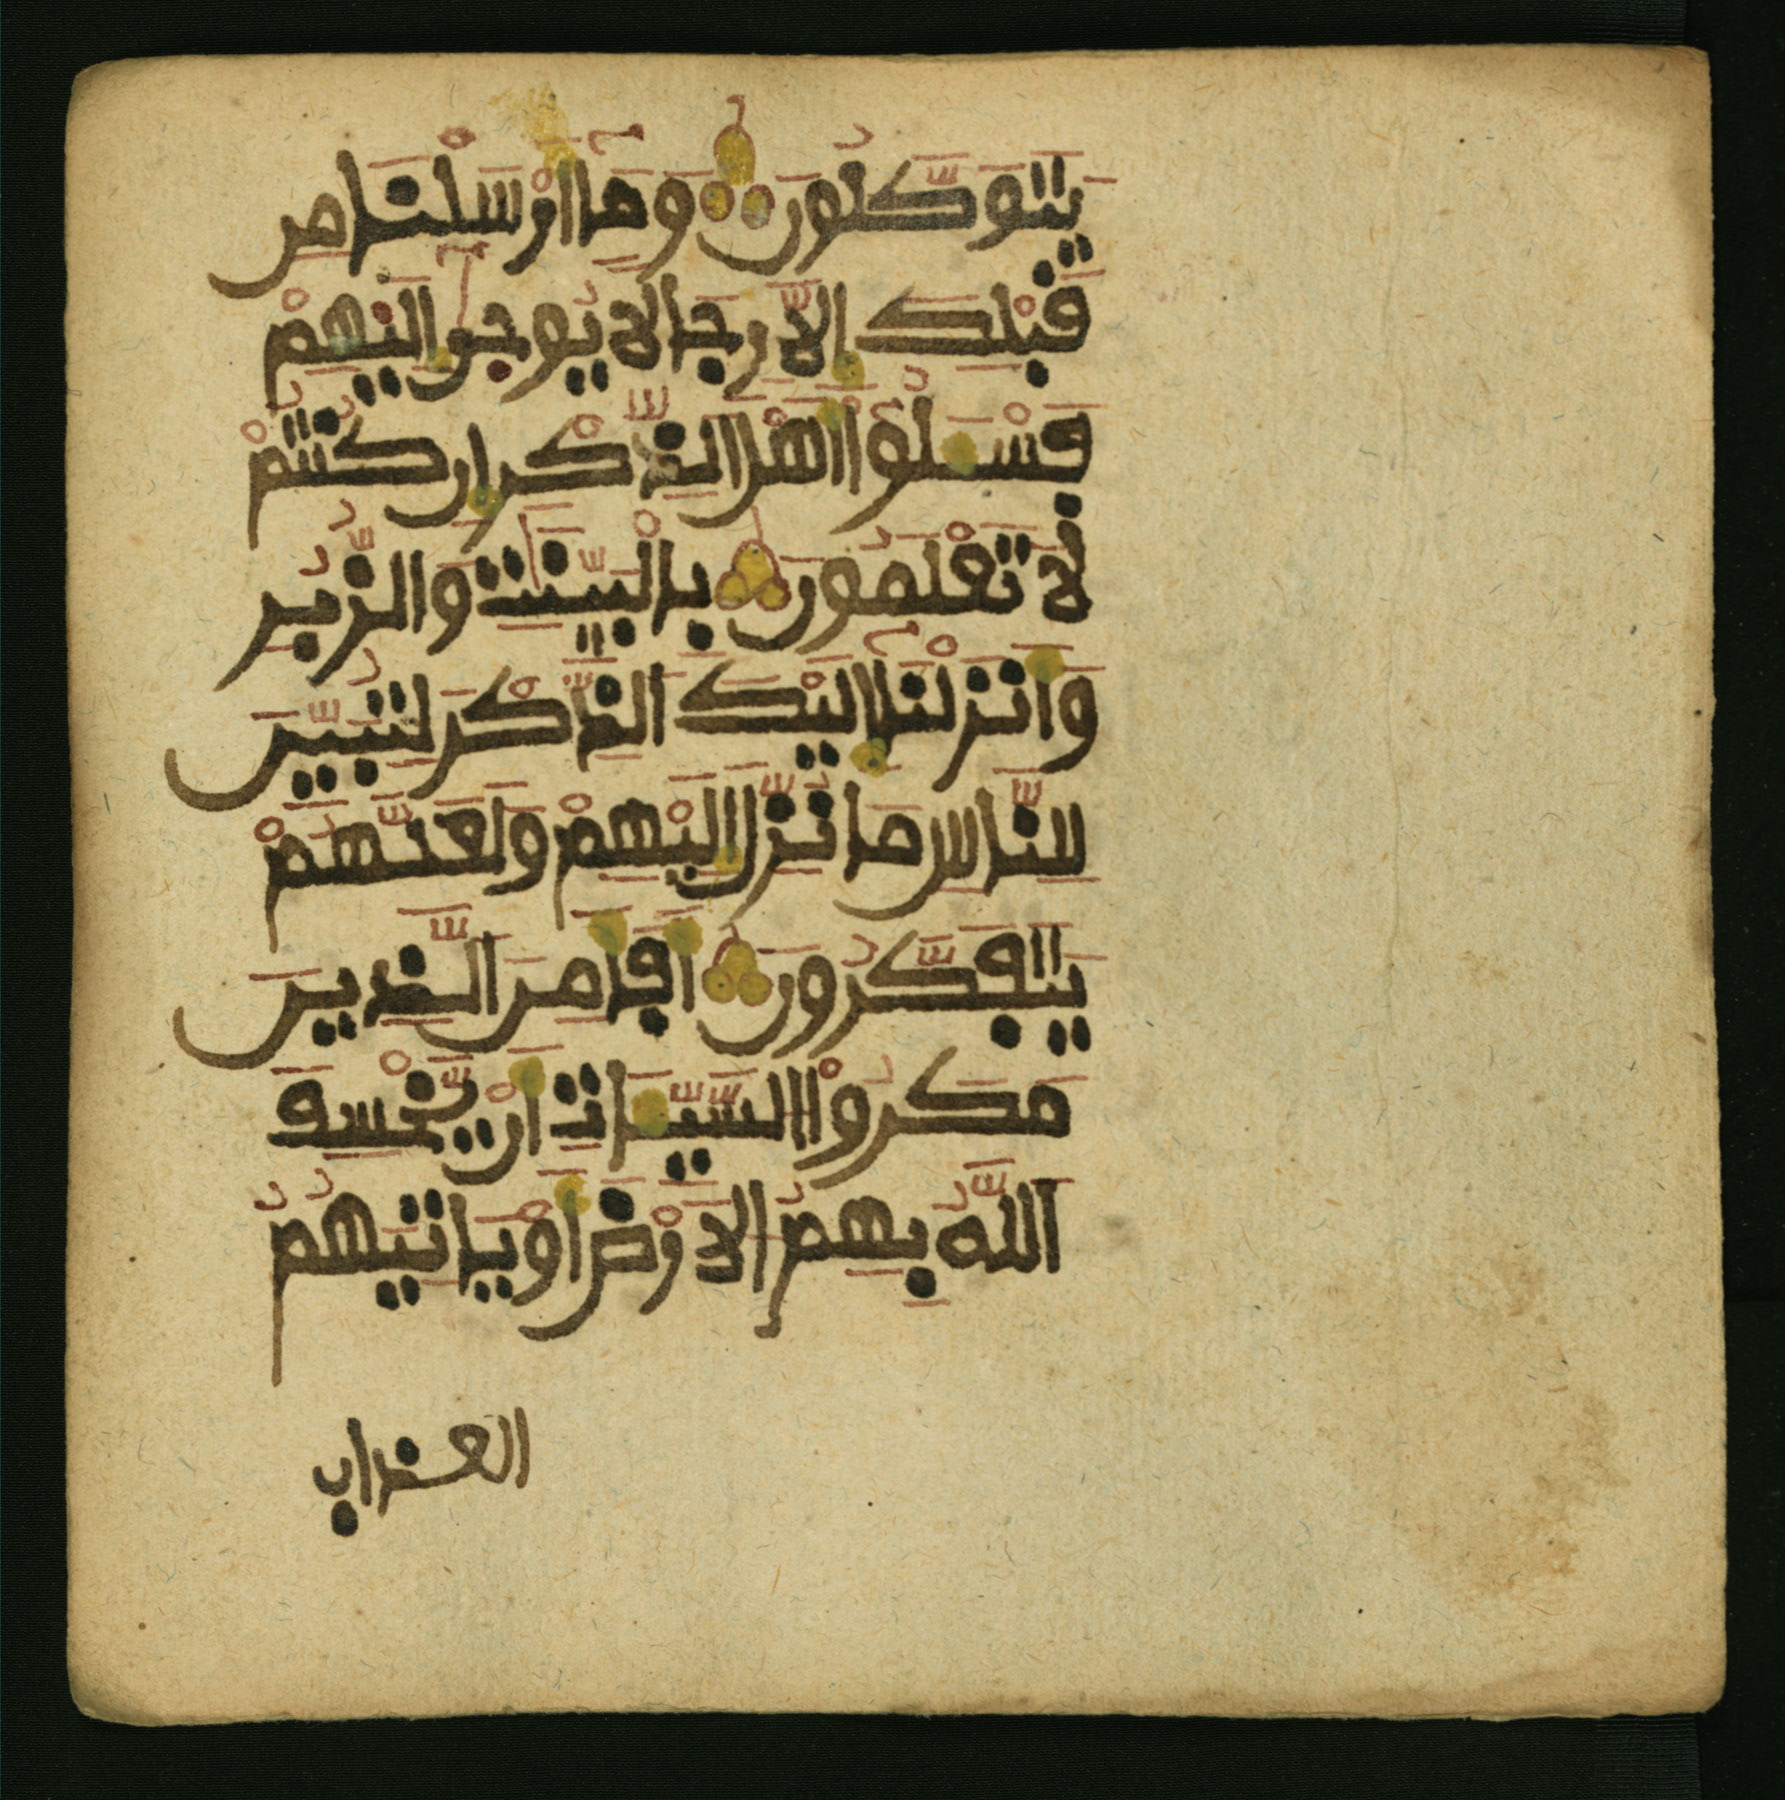 يَتَوَكَّلُونَ وَمَا أَرْسَلْنَا مِن
قَبْلِكَ إِلَّا رِجَالًا يُوحَىٰ إِلَيْهِمْ
فَسْـَٔلُوٓا۟ أَهْلَ الذِّكْرِ إِن كُنتُمْ
لَا تَعْلَمُونَ بِالْبَيِّنَٰتِ وَالزُّبُرِ
وَأَنزَلْنَا إِلَيْكَ الذِّكْرَ لِتُبَيِّنَ
لِلنَّاسِ مَا نُزِّلَ إِلَيْهِمْ وَلَعَلَّهُمْ
يَتَفَكَّرُونَ أَفَأَمِنَ الَّذِينَ
مَكَرُوا السَّيِّـَٔاتِ أَنْ يَّخْسِفَ
اللَّهُ بِهِمُ الْأَرْضَ أَوْ يَاتِيَهُمُ
العذاب